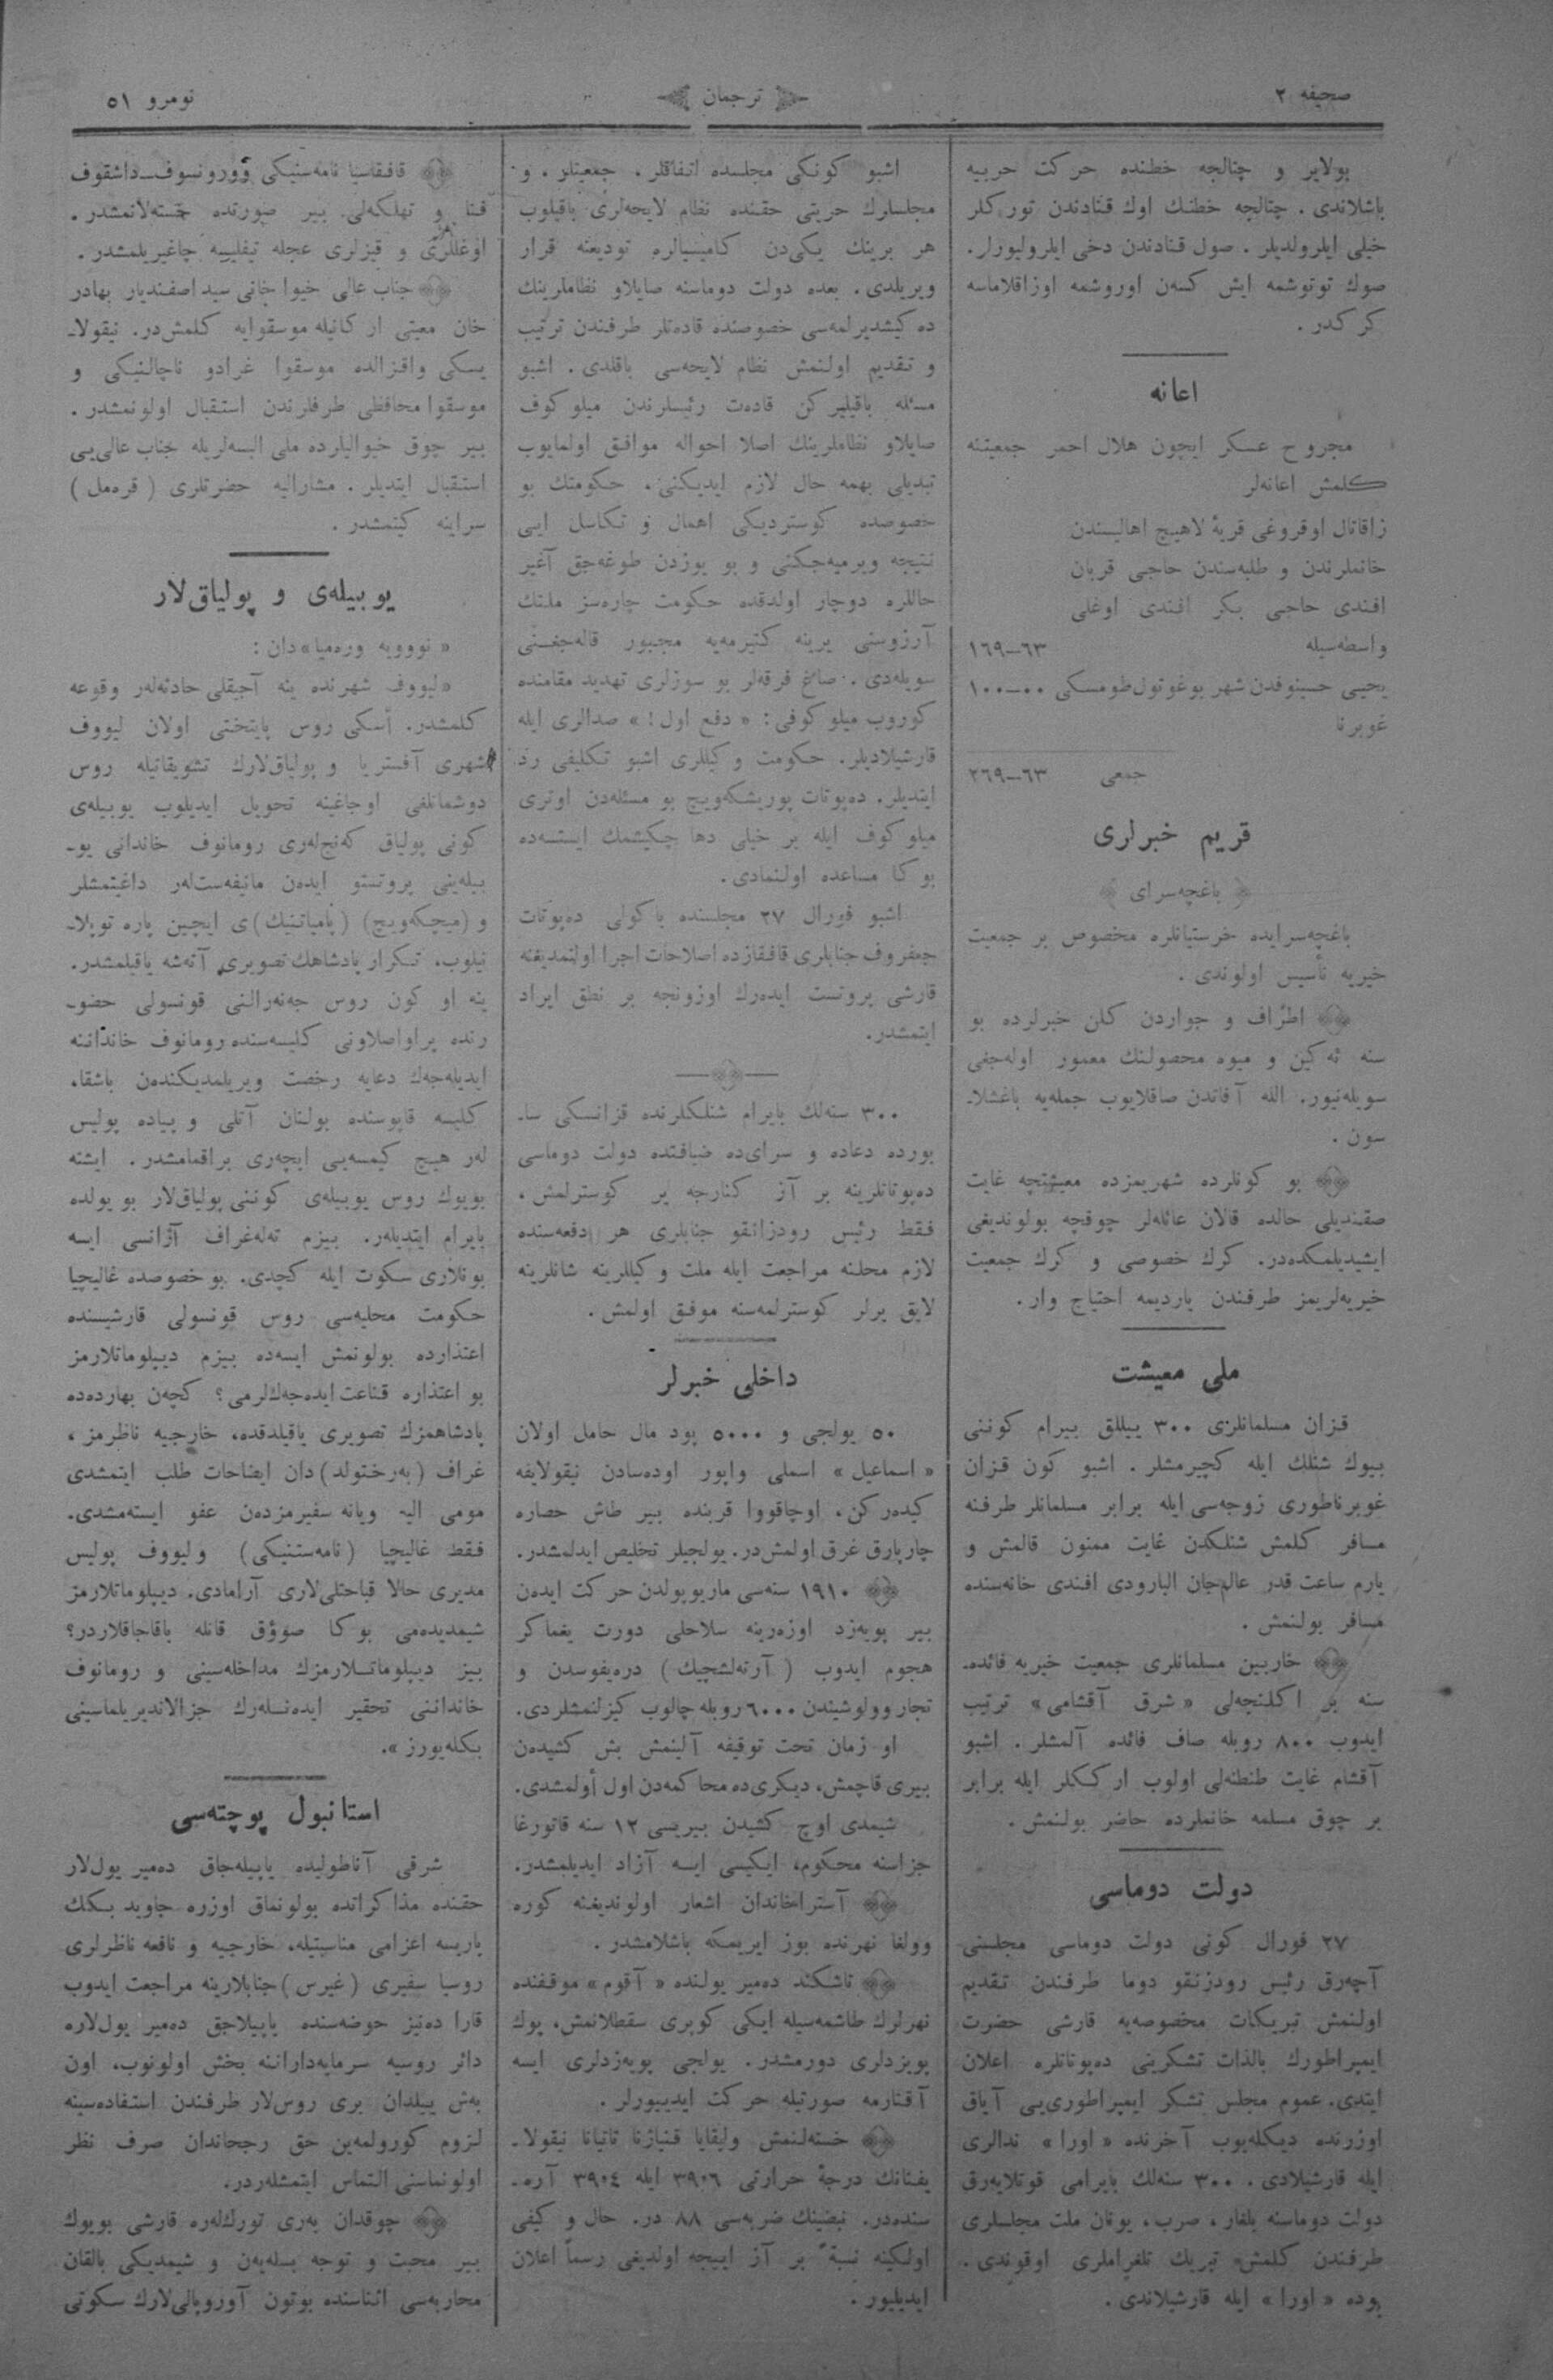 صحیفه ۲
ترجمان
نومرو ۵۱
بولایر و چتالجه خطنده حرکت حربیه
باشلاندی . چتالجه خطنك اوك قنادندن تورکلر
خیلی ایلرولدیلر . صول قنادندن دخی ایلرولیورلر.
صوك توتوشمه ایش کسەن اوروشمه اوزاقلاماسه
کرکدر .
اعانه
مجروح عسکر ایچون هلال احمر جمعیتنه
کلمش اعانه‌لر
زاقاتال اوقروغی قریهٔ لاهیج اهالیسندن
خانملرندن و طلبه‌سندن حاجی قربان
افندی حاجی بکر افندی اوغلی
واسطه‌سیله ۶۳—۱۶۹
یحیی حسینوفدن شهر بوغوتول طومسکی ۰۰—۱۰۰
غوبرنا
جمعی ۶۳—۲۶۹
قریم خبرلری
باغچه‌سرای
باغچه‌سرایده خرستیانلره مخصوص بر جمعیت
خیریه تأسیس اولوندی .
اطراف و جواردن کلن خبرلرده بو
سنه ئه‌کین و میوه محصولنك معمور اوله‌جغی
سویله‌نیور. الله آفاتدن صاقلایوب جمله‌یه باغشلا-
سون .
بو کونلرده شهریمزده معیشتچه غایت
صقندیلی حالده قالان عائله‌لر چوقچه بولوندیغی
ایشیدیلمکده‌در. کرك خصوصی و کرك جمعیت
خیریه‌لریمز طرفندن یاردیمه احتیاج وار.
ملی معیشت
قزان مسلمانلری ۳۰۰ ییللق بیرام کوننی
بیوك شنلك ایله کچیرمشلر . اشبو کون قزان
غوبرناطوری زوجه‌سی ایله برابر مسلمانلر طرفنه
مسافر کلمش شنلکدن غایت ممنون قالمش و
یارم ساعت قدر عالمجان البارودی افندی خانه‌سنده
مسافر بولنمش .
خاربین مسلمانلری جمعیت خیریه فائده-
سنه بر اکلنجه‌لی « شرق آقشامی » ترتیب
ایدوب ۸۰۰ روبله صاف فائده آلمشلر . اشبو
آقشام غایت طنطنه‌لی اولوب ارککلر ایله برابر
بر چوق مسلمه خانملرده حاضر بولنمش .
دولت دوماسی
۲۷ فورال کونی دولت دوماسی مجلسنی
آچه‌رق رئیس رودزنقو دوما طرفندن تقدیم
اولنمش تبریکات مخصوصه‌یه قارشی حضرت
ایمپراطورك بالذات تشکرینی ده‌پوتاتلره اعلان
ایتدی. عموم مجلس تشکر ایمپراطوری‌یی آیاق
اوزرنده دیکله‌یوب آخرنده « اورا » ندالری
ایله قارشیلادی . ۳۰۰ سنه‌لك بایرامی قوتلایه‌رق
دولت دوماسنه بلغار ، صرب، یونان ملت مجلسلری
طرفندن کلمش تبریك تلغراملری اوقوندی .
بوده « اورا » ایله قارشیلاندی .
اشبو کونکی مجلسده اتفاقلر . جمعیتلر . و
مجلسلرك حریتی حقنده نظام لایحه‌لری باقیلوب
هر برینك یکی‌دن کامیسیالره تودیعنه قرار
ویریلدی . بعده دولت دوماسنه صایلاو نظاملرینك
ده‌کیشدیرلمه‌سی خصوصنده قاده‌تلر طرفندن ترتیب
و تقدیم اولنمش نظام لایحه‌سی باقلدی . اشبو
مسئله باقیلیرکن قاده‌ت رئیسلرندن میلوکوف
صایلاو نظاملرینك اصلا احواله موافق اولمایوب
تبدیلی بهمه حال لازم ایدیکنی ، حکومتك بو
خصوصده کوستردیکی اهمال و تکاسل ایی
نتیجه ویرمیه‌جکنی و بو یوزدن طوغه‌جق آغیر
حاللره دوچار اولدقده حکومت چاره‌سز ملتك
آرزوسنی یرینه کتیرمه‌یه مجبور قاله‌جغنی
سویله‌دی . صاغ فرقه‌لر بو سوزلری تهدید مقامنده
کوروب میلوکوفی : « دفع اول ! » صدالری ایله
قارشیلادیلر. حکومت وکیللری اشبو تکلیفی رد
ایتدیلر. ده‌پوتات پوریشکه‌ویچ بو مسئله‌دن اوتری
میلوکوف ایله بر خیلی دها چکیشمك ایستسه‌ده
بوکا مساعده اولنمادی.
اشبو فورال ۲۷ مجلسنده باکولی ده‌پوتات
جعفروف جنابلری قافقازده اصلاحات اجرا اولنمدیغنه
قارشی پروتست ایده‌رك اوزونجه بر نطق ایراد
ایتمشدر.
۳۰۰ سنه‌لك بایرام شنلکلرنده قزانسکی سا-
بورده دعاده و سرای‌ده ضیافتده دولت دوماسی
ده‌پوتاتلرینه بر آز کنارجه یر کوسترلمش ،
فقط رئیس رودزانقو جنابلری هر دفعه‌سنده
لازم محلنه مراجعت ایله ملت وکیللرینه شانلرینه
لایق یرلر کوسترلمه‌سنه موفق اولمش .
داخلی خبرلر
۵۰ یولجی و ۵۰۰۰ پود مال حامل اولان
« اسماعیل » اسملی واپور اوده‌سادن نیقولایفه
کیده‌رکن، اوچاقووا قربنده بیر طاش حصاره
چارپارق غرق اولمش‌در. یولجیلر تخلیص ایدلمشدر.
۱۹۱۰ سنه‌سی ماریوپولدن حرکت ایده‌ن
بیر پویه‌زد اوزه‌رینه سلاحلی دورت یغماکر
هجوم ایدوب ( آرته‌لشچیك ) دره‌یفوسدن و
تجار وولوشیندن ۶۰۰۰ روبله چالوب کیزلنمشلردی.
او زمان تحت توقیفه آلینمش بش کشیده‌ن
بیری قاچمش، دیکری‌ده محاکمه‌دن اول أولمشدی.
شیمدی اوچ کشیدن بیریسی ۱۲ سنه قاتورغا
جزاسنه محکوم، ایکیسی ایسه آزاد ایدیلمشدر.
آستراخاندان اشعار اولوندیغنه کوره
وولغا نهرنده بوز ایریمکه باشلامشدر .
تاشکند ده‌میر یولنده « آقوم » موقفنده
نهرلرك طاشمه‌سیله ایکی کوپری سقطلانمش، یوك
پویزدلری دورمشدر. یولجی پویه‌زدلری ایسه
آقتارمه صورتیله حرکت ایدیبورلر .
خسته‌لنمش ولیقایا قنیاژنا تاتیانا نیقولا-
یفنانك درجهٔ حرارتی ۳۹٬۶ ایله ۳۹٬۴ آره-
سنده‌در. نبضینك ضربه‌سی ۸۸ در. حال و کیفی
اولکینه نسبةً بر آز اییجه اولدیغی رسماً اعلان
ایدیلیور .
قافقاسیا نامه‌ستنیکی وورونسوف-داشقوف
فنا و تهلکه‌لی بیر صورتده خسته‌لانمشدر .
اوغللری و قیزلری عجله تیفلیسه چاغیریلمشدر .
جناب عالی خیوا خانی سید اصفندیار بهادر
خان معیتی ارکانیله موسقوایه کلمش‌در. نیقولا-
یسکی واقزالده موسقوا غرادو ناچالنیکی و
موسقوا محافظی طرفلرندن استقبال اولونمشدر .
بیر چوق خیوالیلرده ملی البسه‌لریله جناب عالی‌یی
استقبال ایتدیلر . مشارالیه حضرتلری ( قره‌مل )
سراینه کیتمشدر .
یوبیله‌ی و پولیاق‌لار
« نووویه وره‌میا » دان :
« لیووف شهرنده ینه آجیقلی حادثه‌لەر وقوعه
کلمشدر. أسکی روس پایتختی اولان لیووف
شهری آفستریا و پولیاق‌لارك تشویقاتیله روس
دوشمانلغی اوجاغینه تحویل ایدیلوب یوبیله‌ی
کونی پولیاق کەنج‌لەری رومانوف خاندانی یو-
بیله‌ینی پروتستو ایدەن مانیفەست‌لەر داغیتمشلر
و (میچکه‌ویچ) (پامیاتنیك)ی ایچین پاره توپلا-
نیلوب، تکرار پادشاهك تصویری آتەشه یاقیلمشدر.
ینه او کون روس جەنەرالنی قونسولی حضو-
رنده پراواصلاونی کلیسه‌سنده رومانوف خاندانته
ایدیله‌جەك دعایه رخصت ویریلمدیکندەن باشقا،
کلیسه قاپوسنده بولنان آتلی و پیاده پولیس
لەر هیچ کیمسه‌یی ایچەری براقمامشدر . ایشته
بویوك روس یوبیله‌ی کوننی پولیاق‌لار بو یولده
بایرام ایتدیلەر. بیزم تەلەغراف آژانسی ایسه
بونلاری سکوت ایله کچدی. بو خصوصده غالیچیا
حکومت محلیه‌سی روس قونسولی قارشیسنده
اعتذارده بولونمش ایسه‌ده بیزم دیپلوماتلارمز
بو اعتذاره قناعت ایده‌جەك‌لرمی؟ کچەن بهارده‌ده
پادشاهمزك تصویری یاقیلدقده، خارجیه ناظرمز ،
غراف (بەرختولد)دان ایضاحات طلب ایتمشدی
مومی الیه ویانه سفیرمزدەن عفو ایسته‌مشدی.
فقط غالیچیا (نامه‌ستنیکی) و لیووف پولیس
مدیری حالا قباحتلی‌لاری آرامادی. دیپلوماتلارمز
شیمدیده‌می بوکا صوؤق قانله باقاجاقلاردر؟
بیز دیپلوماتلارمزك مداخله‌سینی و رومانوف
خاندانی تحقیر ایدەنلەرك جزالاندیریلماسینی
بکله‌یورز ».
استانبول پوچته‌سی
شرقی آناطولیده یاپیله‌جاق دەمیر یول‌لار
حقنده مذاکراتده بولونماق اوزره جاوید بکك
پاریسه اعزامی مناسبتیله، خارجیه و نافعه ناظرلری
روسیا سفیری (غیرس) جنابلارینه مراجعت ایدوب
قارا دەنیز حوضه‌سنده یاپیلاجق دەمیر یول‌لاره
دائر روسیه سرمایه‌دارانته بخش اولونوب، اون
بەش ییلدان بری روس‌لار طرفندن استفاده‌سینه
لزوم کورولمه‌ین حق رجحاندان صرف نظر
اولونماسنی التماس ایتمشلەردر.
چوقدان بەری تورك‌لەره قارشی بویوك
بیر محبت و توجه بسله‌یەن و شیمدیکی بالقان
محاربه‌سی اثناسنده بوتون آوروپالی‌لارك سکوتی